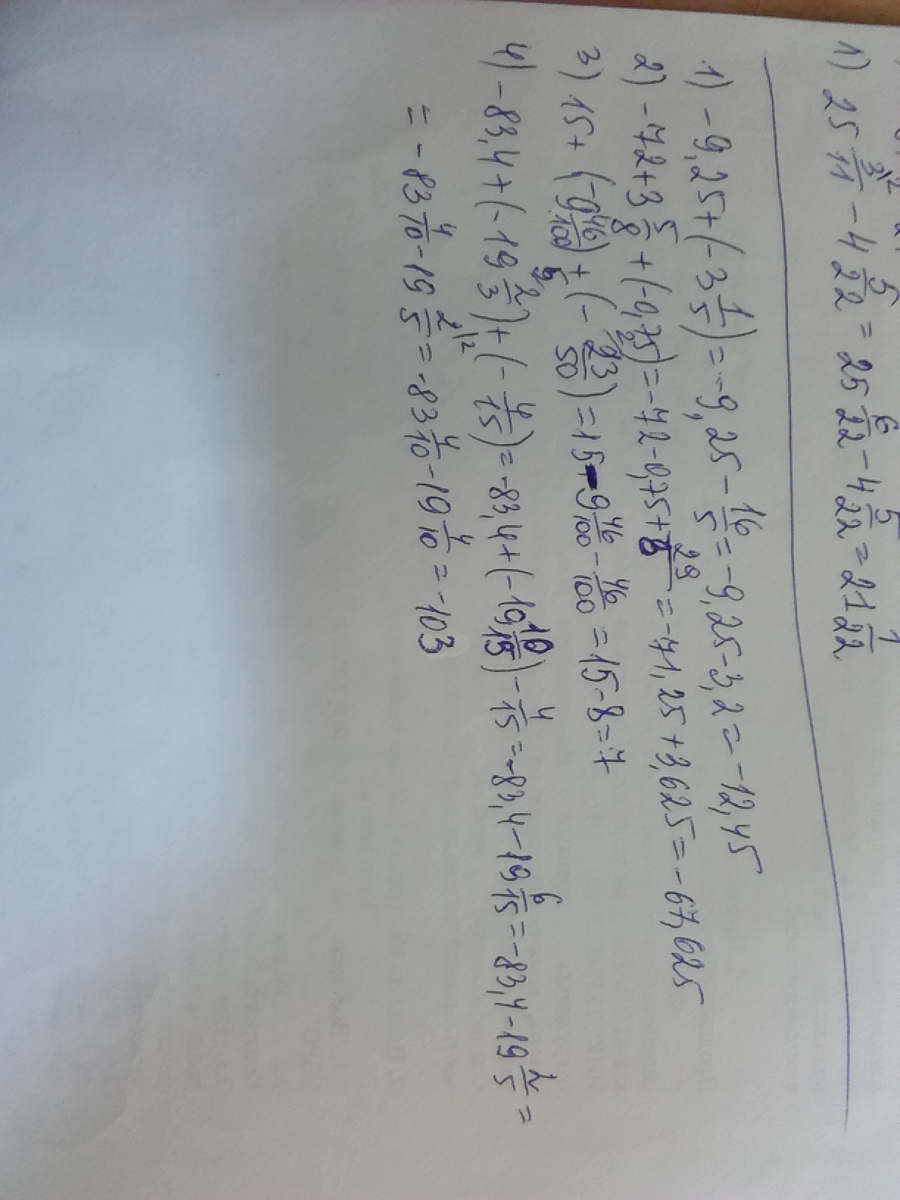 1) 25 3/11 - 4 5/22 = 25 6/22 - 4 5/22 = 21 1/22
1) -9,25 + (-3 1/5) = -9,25 - 16/5 = -9,25 - 3,2 = -12,45
2) -72 + 3 5/8 + (-0,75) = -72 - 0,75 + 29/8 = -71,25 + 3,625 = -67,625
3) 15 + (-9 46/100) + (- 23/50) = 15 - 9 46/100 - 46/100 = 15 - 8 = 7
4) -83,4 + (-19 2/3) + (- 4/15) = -83,4 + (-19 10/15) - 4/15 = -83,4 - 19 6/15 = -83,4 - 19 2/5 =
= -83 4/10 - 19 2/5 = -83 4/10 - 19 4/10 = -103